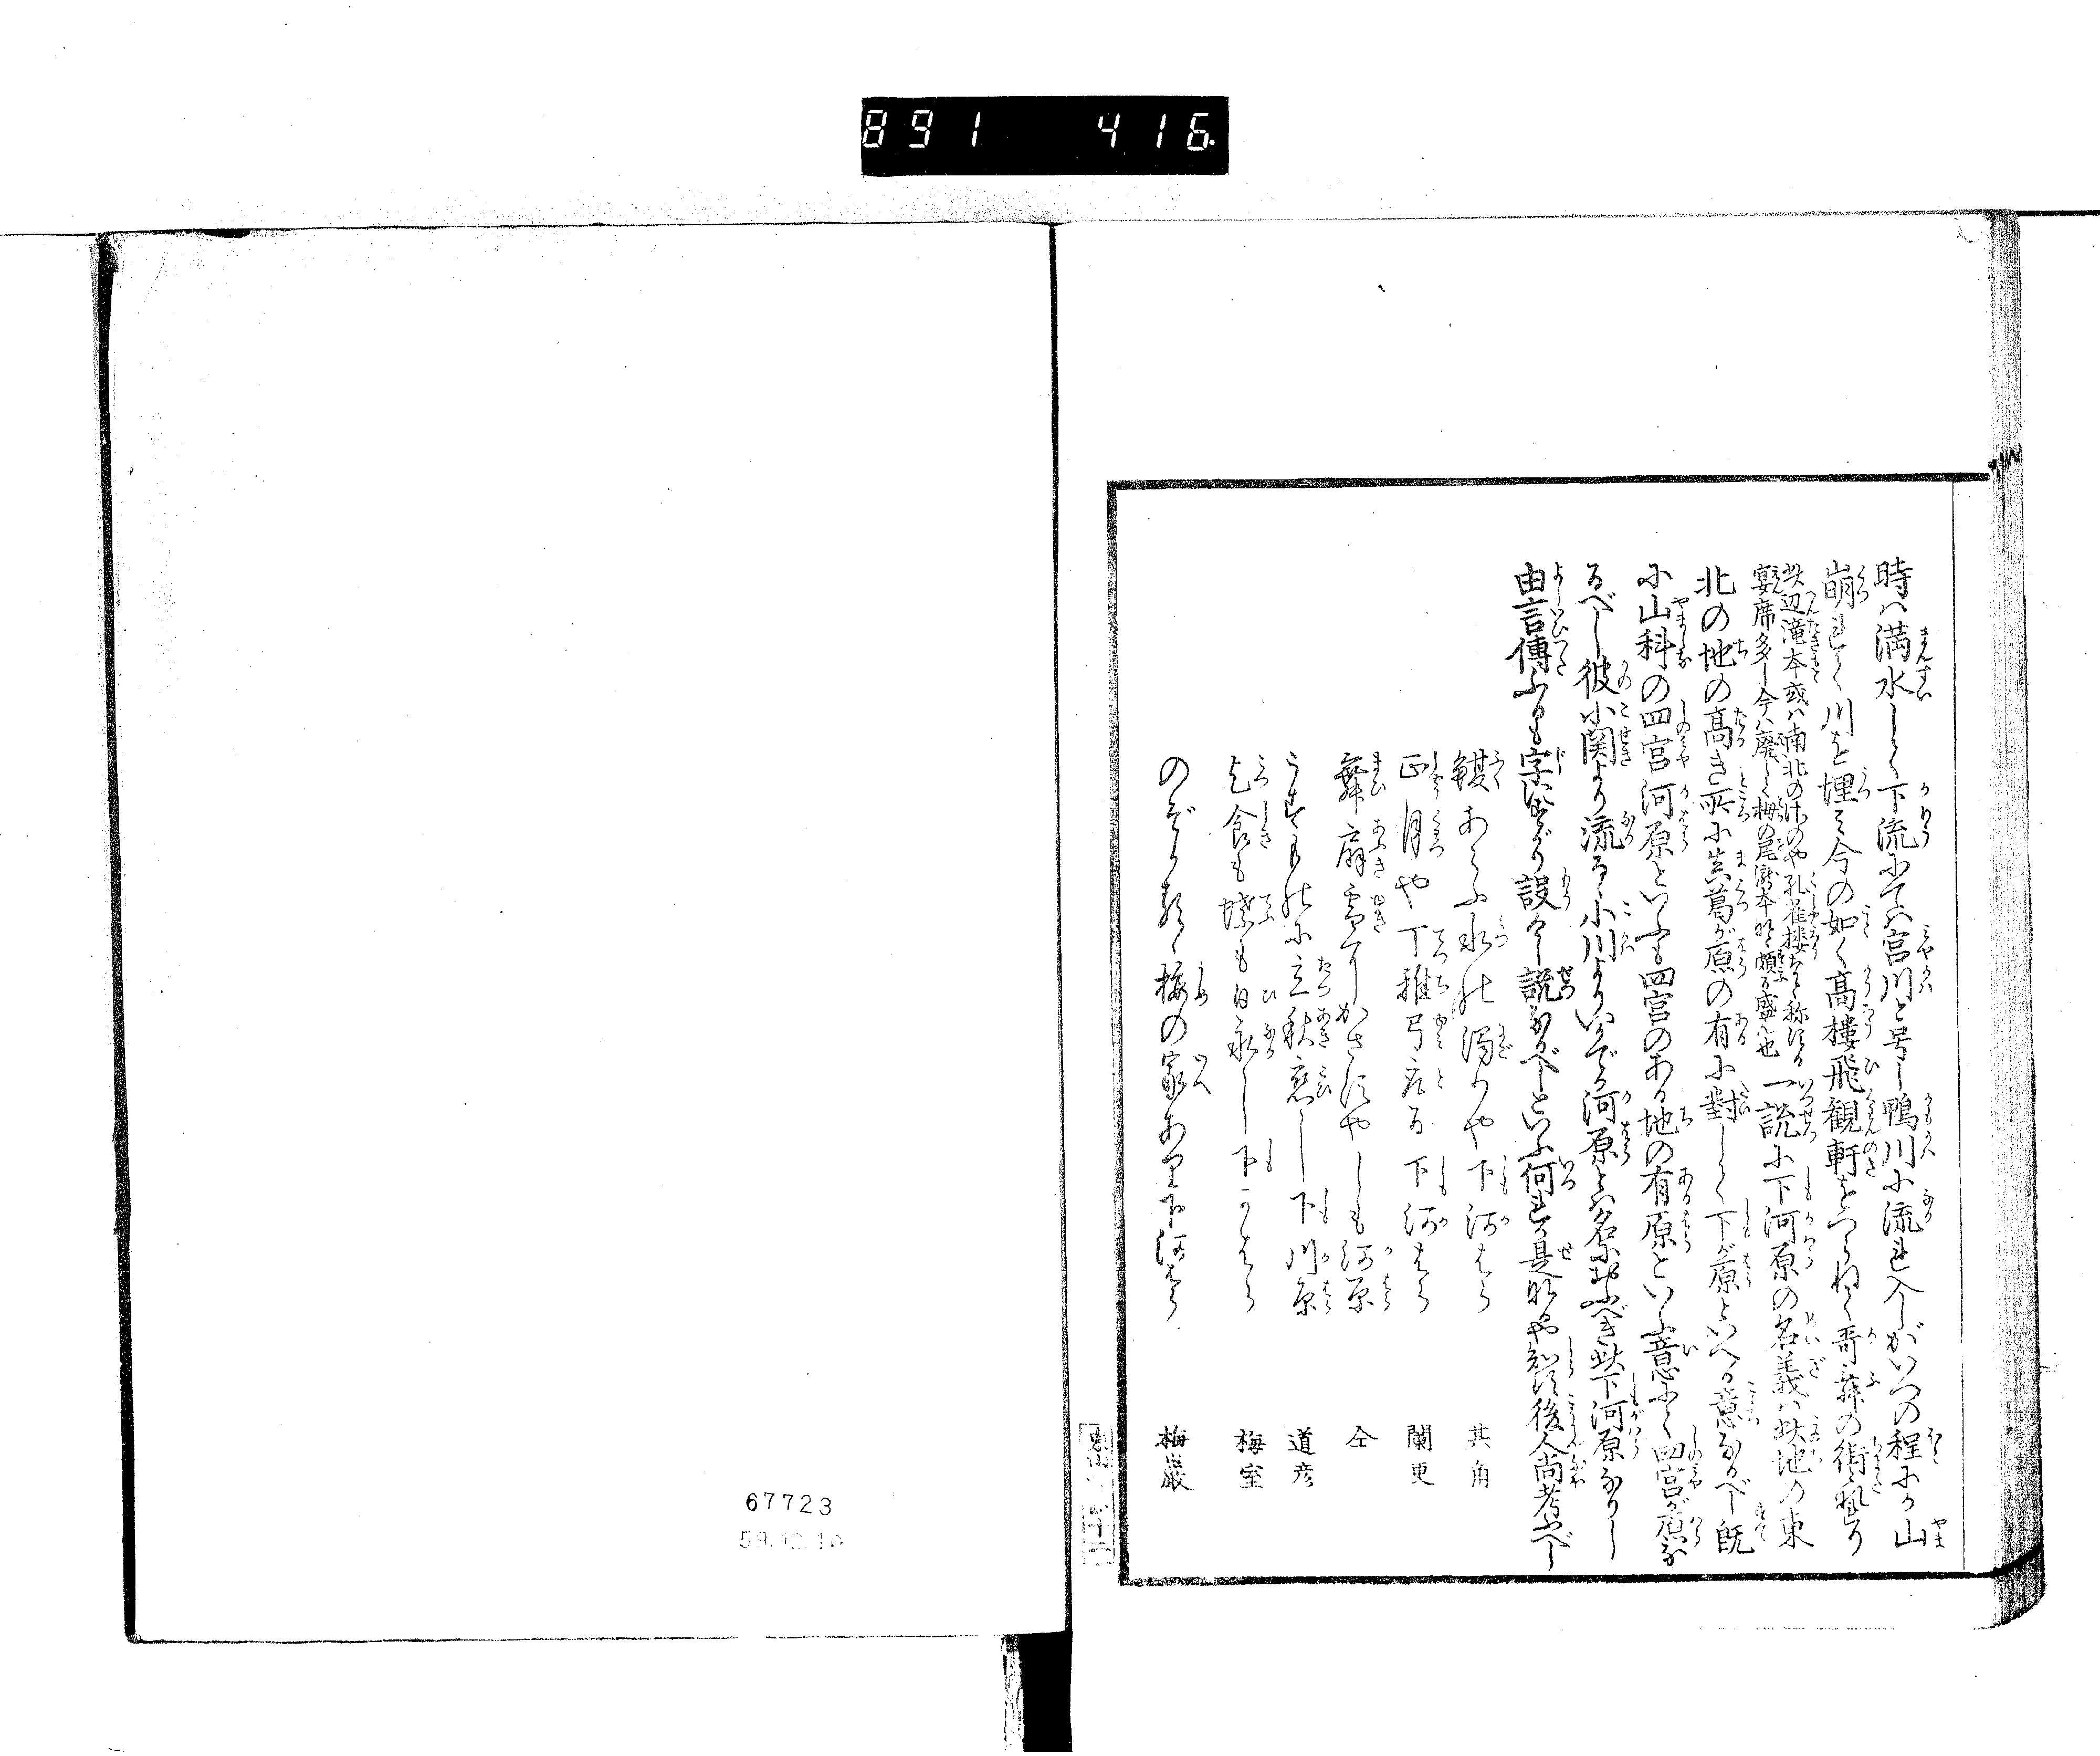 891 416
時ハ満水して下流にてハ宮川と号し鴨川に流れ入しがいつの程にか山
崩れて川を埋みて今の如く高樓飛観軒をつらねて哥舞の街となり
此辺滝本或ハ南北の 孔雀樓などゝ称する
宴席多し今ハ廃して栂の尾瀧本など頗る盛也
一説に下河原の名義ハ此地の東
北の地の高き所に真葛が原の有に對して下が原といへる意なるべし既
に山科の四宮河原といふも四宮のある地の有原といふ意にて四宮が原な
るべし彼小関より流るゝ小川よりいかでか河原とハ名におふべき此下河原なりし
由言傳ふるも字によりて設けし説なるべしといふ何れか是なるや知らず後人尚考ふべし
鰒あらふ水の濁りや下河はら 其角
正月や丁稚弓取る下河はら 闌更
舞扇雪にかさばやしも河原 仝
うき 水に立秋恋し下川原 道彦
乞食も蝶も日永し下かはら 梅室
のぞく 梅の家あり下河はら 梅巌
67723
59.12.10